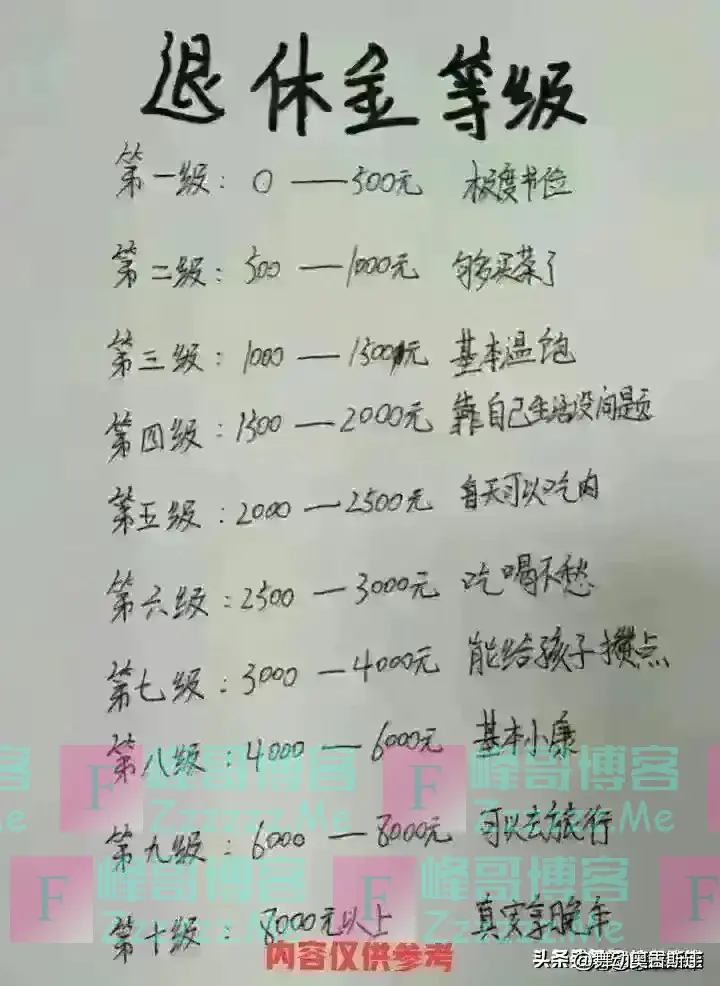 退休金等级
第一级：0——500元 极度节俭
第二级：500——1000元 够买菜了
第三级：1000——1500元 基本温饱
第四级：1500——2000元 靠自己生活没问题
第五级：2000——2500元 每天可以吃肉
第六级：2500——3000元 吃喝不愁
第七级：3000——4000元 能给孩子攒点
第八级：4000——6000元 基本小康
第九级：6000——8000元 可以去旅行
第十级：8000元以上 真实享晚年
F 峰哥博客
Zzzzzz.Me
F 峰哥博客
Zzzzzz.Me
内容仅供参考
头条